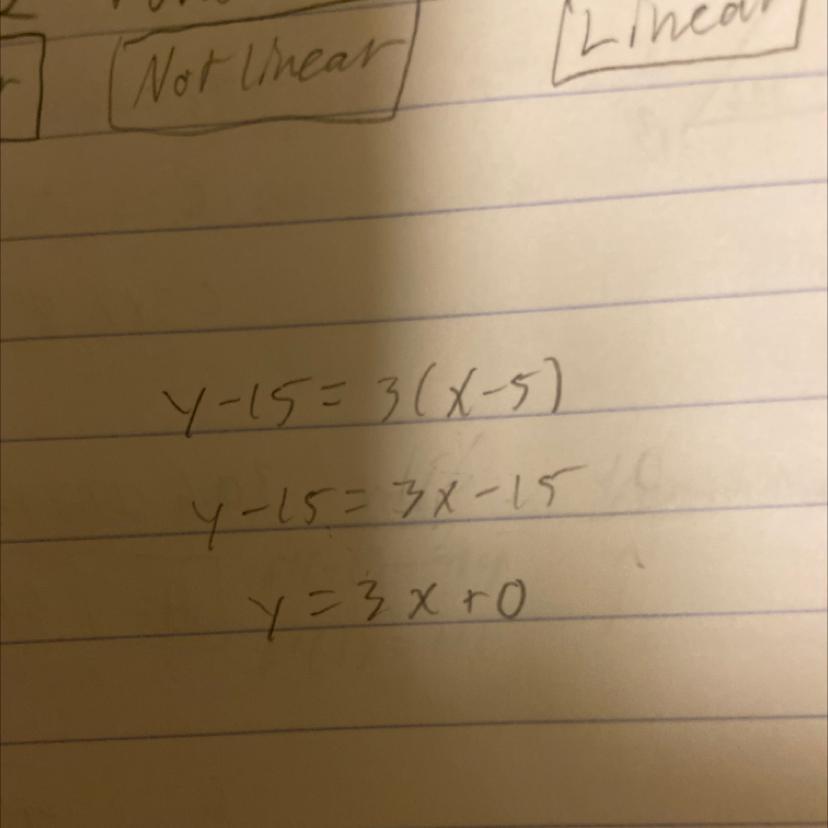 Not Linear
Linear
y-15=3(x-5)
y-15=3x-15
y=3x+0